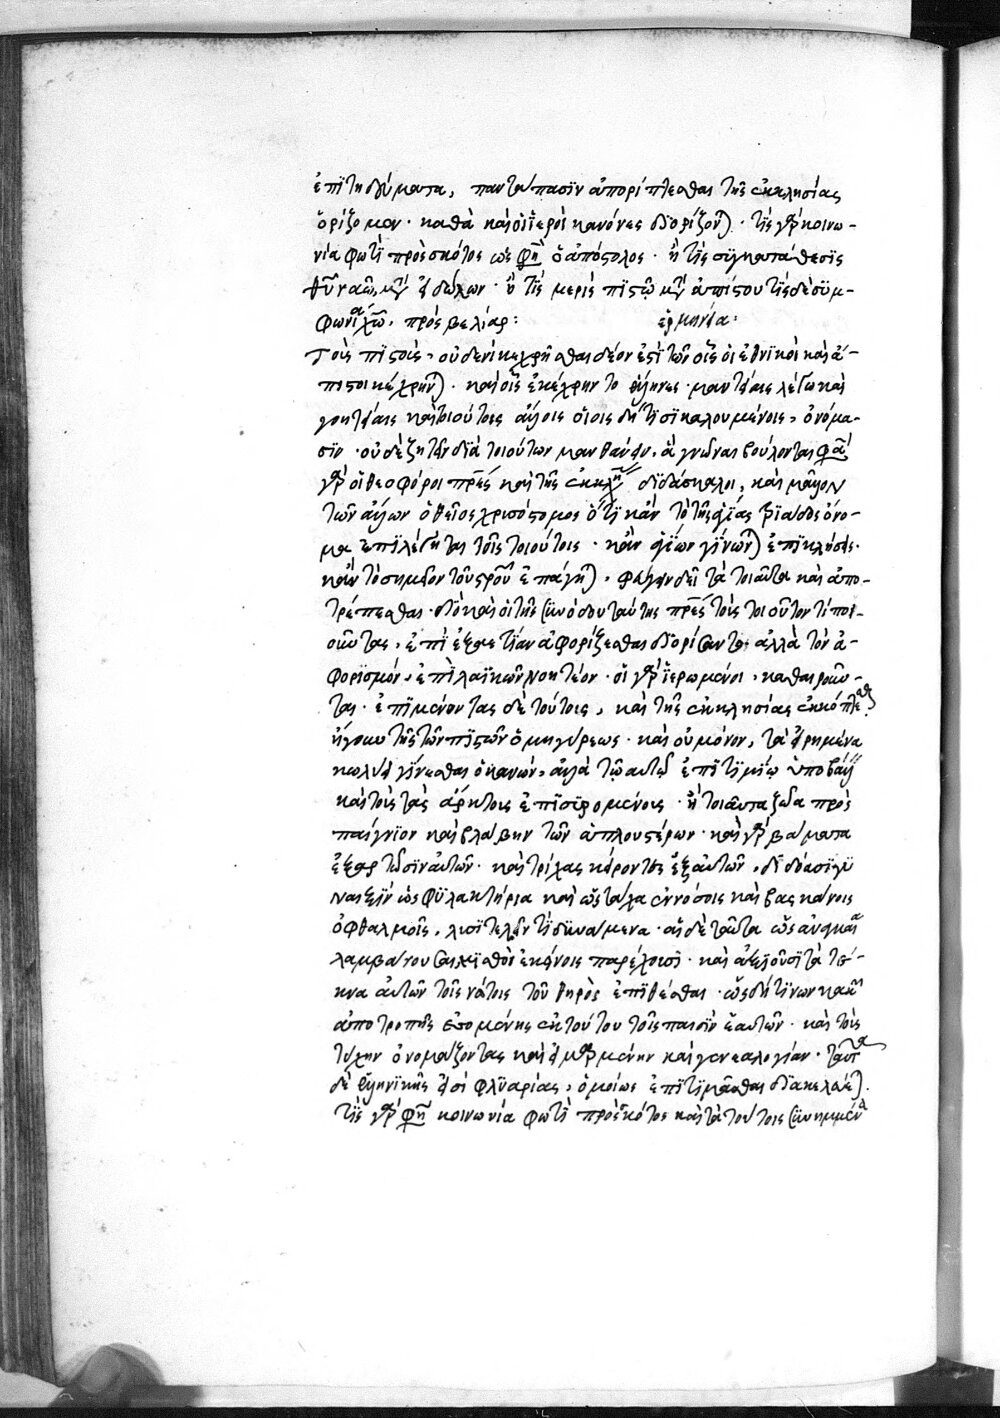 ἐπιτηδεύματα, παντάπασιν ἀπορίπτεσθαι τῆς ἐκκλησίας
ὁρίζομεν· καθὰ καὶ οἱ ἱεροὶ κανόνες διορίζονται· τίς γὰρ κοινω-
νία φωτὶ πρὸς σκότος ὥς φησιν ὁ ἀπόστολος· ἢ τίς συγκατάθεσις
θεοῦ ναῶ, μετὰ εἰδώλων· ἢ τίς μερὶς πιστῶ μετὰ ἀπίστου τίς δὲ συμ-
φωνία χριστῶ, πρὸς βελίαρ: ἑρμηνεία:
Τοῖς πιστοῖς, οὐδενὶ κεχρῆσθαι δέον ἐστὶ τῶν οἷς οἱ ἐθνικοὶ καὶ ἄ-
πιστοι κέχρηνται· καὶ οἷς ἐκέχρηντο ἕλληνες· μαντείαις λέγω καὶ
γοητείαις καὶ τοιούτοις ἄλλοις οἵοις δή τισι καλουμένοις, ὀνόμα-
σιν· οὐδὲ ζητεῖν διὰ τοιούτων μανθάνειν, ἃ γνῶναι βούλονται φασὶ
γὰρ οἱ θεοφόροι πατέρες καὶ τῆς ἐκκλησίας διδάσκαλοι, καὶ μᾶλλον
τῶν ἄλλων ὁ θεῖος χρυσόστομος ὅτι κἂν τὸ τῆς ἁγίας τριάδος ὄνο-
μα ἐπιλέγηται τοῖς τοιούτοις· κἂν ἁγίων γίνωνται ἐπικλήσεις·
κἂν τὸ σημεῖον τοῦ σταυροῦ ἐπάγηται, φεύγειν δεῖ τὰ τοιαῦτα καὶ ἀπο-
τρέπεσθαι· διὸ καὶ οἱ τῆς συνόδου ταύτης πατέρες τοὺς τοιοῦτόν τι ποι-
οῦντας, ἐπὶ ἑξαετίαν ἀφορίζεσθαι διορίσαντο· ἀλλὰ τὸν ἀ-
φορισμόν, ἐπὶ λαϊκῶν νοητέον· οἱ γὰρ ἱερωμένοι, καθαιροῦν-
ται· ἐπιμένοντας δὲ τούτοις, καὶ τῆς ἐκκλησίας ἐκκόπτεσθαι
ἤγουν τῆς τῶν πιστῶν ὁμηγύρεως· καὶ οὐ μόνον, τὰ εἰρημένα
κωλύει γίνεσθαι ὁ κανών, ἀλλὰ τῶ αὐτῶ ἐπιτιμίω ὑποβάλλει
καὶ τοὺς τὰς ἄρκτους ἐπισυρομένους· ἢ τοιαῦτα ζῶα πρὸς
παίγνιον καὶ βλάβην τῶν ἁπλουστέρων· καὶ γὰρ βάμματα
ἐξαρτῶσιν αὐτῶν· καὶ τρίχας κείροντες ἐξ αὐτῶν, διδόασι γυ
ναιξὶν ὡς φυλακτήρια καὶ ὡς τάχα ἐν νόσοις καὶ βασκάνοις
ὀφθαλμοῖς, λυσιτελεῖν τι δυνάμενα·
λαμβάνουσαι μισθὸν ἐκείνοις παρέχουσι· καὶ ἀξιοῦσι τὰ τέ-
κνα αὐτῶν τοῖς νώτοις τοῦ θηρὸς ἐπιθέσθαι· ὡς δή τινων κακῶν
ἀποτροπῆς ἐσομένης ἐκ τούτου τοῖς παισὶν ἑαυτῶν· καὶ τοὺς
τύχην ὀνομάζοντας καὶ εἱμαρμένην καὶ γενεαλογίαν· ταῦτα
δὲ ἑλληνικῆς εἰσὶ φλυαρίας, ὁμοίως ἐπιτιμᾶσθαι διακελεύεται·
τίς γὰρ φησι κοινωνία φωτὶ πρὸς σκότος καὶ τὰ τούτοις συνημμένα